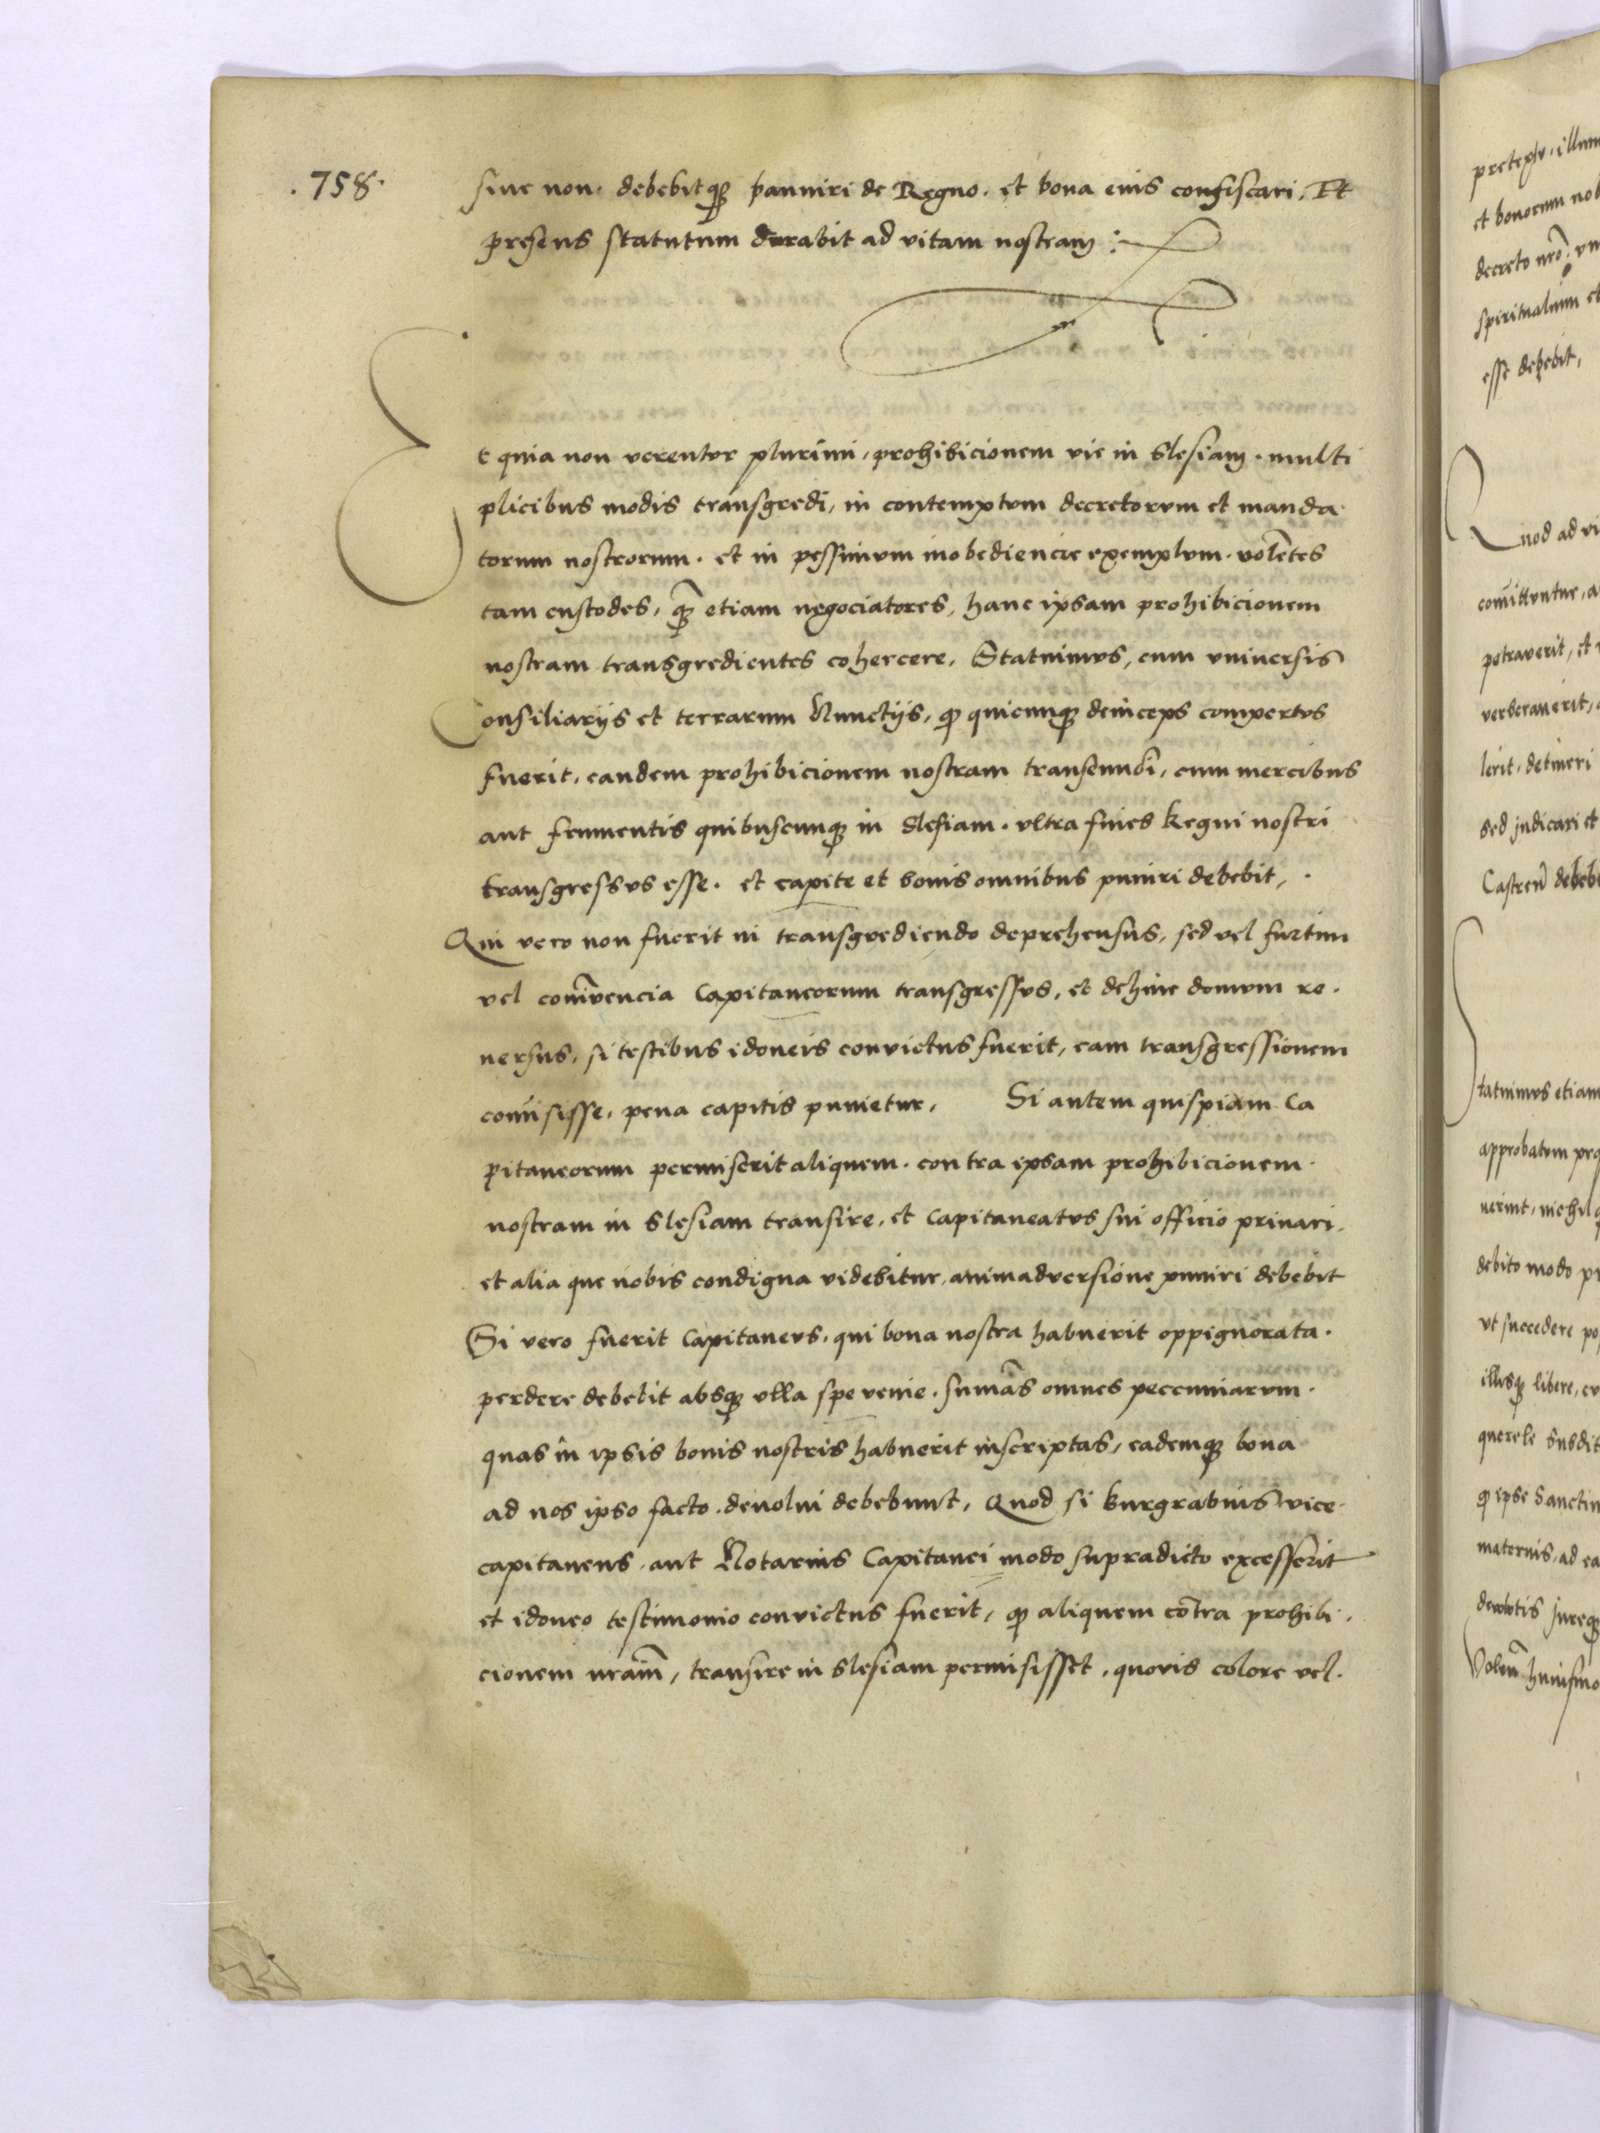 .758.
siue non. debebitq3 banniri de Regno. et bona eius confiscari. Et
presens statutum durabit ad vitam nostram :
Et quia non verentur plurimi, prohibicionem vie in Slesiam. multi
plicibus modis transgredi, in contemptum decretorum et manda
torum nostrorum. et in pessimum inobediencie exemplum. volētes
tam custodes, q̄3 etiam negociatores, hanc ipsam prohibicionem
nostram transgredientes cohercere. Statuimus, cum vniuersis
Consiliarijs et terrarum Nunctijs, q quicunq3 deinceps compertus
fuerit, eandem prohibicionem nostram transeundi, cum mercibus
aut frumentis quibuscunq3 in Slesiam. vltra fines Regni nostri
transgressus esse. et capite et bonis omnibus puniri debebit,.
Qui vero non fuerit in transgrediendo deprehensus, sed vel furtim
vel coniuencia Capitaneorum transgressus, et dehinc domum re.
uersus, si testibus idoneis convictus fuerit, eam transgressionem
com̄isisse, pena capitis punietur, Si autem quispiam Ca
pitaneorum permiserit aliquem. contra ipsam prohibicionem.
nostram in Slesiam transire, et Capitaneatus sui officio priuari.
et alia que nobis condigna videbitur, animadversione puniri debebit
Si vero fuerit Capitaneus, qui bona nostra habuerit oppignorata.
perdere debebit absq3 vlla spe venie. sum̄as omnes pecuniarum.
quas in ipsis bonis nostris habuerit inscriptas, eademq3 bona
ad nos ipso facto. deuolui debebunt, Quod si burgrabius vice.
capitaneus, aut Notarius Capitanei modo supradicto excesserit
et idoneo testimonio convictus fuerit, q aliquem cōtra prohibi.
cionem nr̄am, transire in Slesiam permisisset, quovis colore vel.
pretextu. illum
et bonorum
decreto nr̄o.
spiritualium et
esse debebit,
Quod ad
com̄ittuntur,
petraverit, et
verberauerit,
lerit, detineri
sed judicari et
Castren̄
Statuimus etiam
approbatum
uerint, nichil
debito modo
vt succedere
illisq3 libere,
querele
q ipse
maternis, ad
iureq3